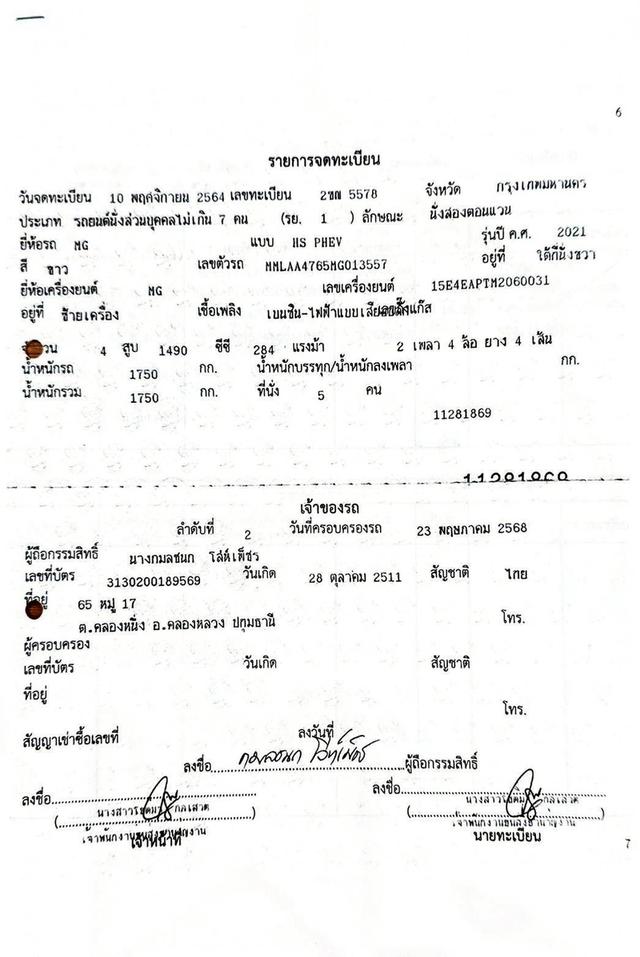 6
รายการจดทะเบียน
วันจดทะเบียน 10 พฤศจิกายน 2564 เลขทะเบียน 2ขฌ 5578 จังหวัด กรุงเทพมหานคร
ประเภท รถยนต์นั่งส่วนบุคคลไม่เกิน 7 คน (รย. 1 ) ลักษณะ นั่งสองตอนแวน
ยี่ห้อรถ MG แบบ HS PHEV รุ่นปี ค.ศ. 2021
สี ขาว เลขตัวรถ MMLAA4765MG013557 อยู่ที่ ใต้ที่นั่งขวา
ยี่ห้อเครื่องยนต์ MG เลขเครื่องยนต์ 15E4EAPTM2060031
อยู่ที่ ซ้ายเครื่อง เชื้อเพลิง เบนซิน-ไฟฟ้าแบบเสียบปลั๊ก
4 สูบ 1490 ซีซี 284 แรงม้า 2 เพลา 4 ล้อ ยาง 4 เส้น
น้ำหนักรถ 1750 กก. น้ำหนักบรรทุก/น้ำหนักลงเพลา กก.
น้ำหนักรวม 1750 กก. ที่นั่ง 5 คน
11281869
11281869
เจ้าของรถ
ลำดับที่ 2 วันที่ครอบครองรถ 23 พฤษภาคม 2568
ผู้ถือกรรมสิทธิ์ นางกมลชนก โล่ห์เพ็ชร
เลขที่บัตร 3130200189569 วันเกิด 28 ตุลาคม 2511 สัญชาติ ไทย
ที่อยู่ 65 หมู่ 17
ต.คลองหนึ่ง อ.คลองหลวง ปทุมธานี โทร.
ผู้ครอบครอง
เลขที่บัตร วันเกิด สัญชาติ
ที่อยู่
โทร.
สัญญาเช่าซื้อเลขที่ ลงวันที่
ลงชื่อ กมลชนก โล่ห์เพ็ชร ผู้ถือกรรมสิทธิ์
ลงชื่อ ลงชื่อ
นางสาว นางสาว
เจ้าพนักงานขนส่งชำนาญงาน เจ้าพนักงานขนส่งชำนาญงาน
เจ้าหน้าที่ นายทะเบียน
7